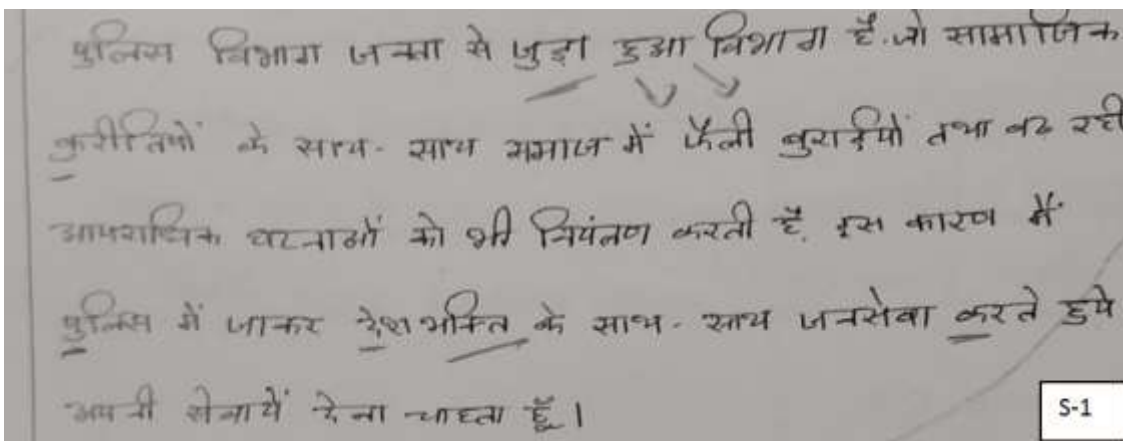 पुलिस विभाग जनता से जुड़ा हुआ विभाग है. जो सामाजिक
कुरीतियों के साथ-साथ समाज में फैली बुराईयों तथा बढ रही
आपराधिक घटनाओं को भी नियंत्रण करती है. इस कारण मैं
पुलिस में जाकर देशभक्ति के साथ-साथ जनसेवा करते हुये
अपनी सेवायें देना चाहता हूँ।
S-1